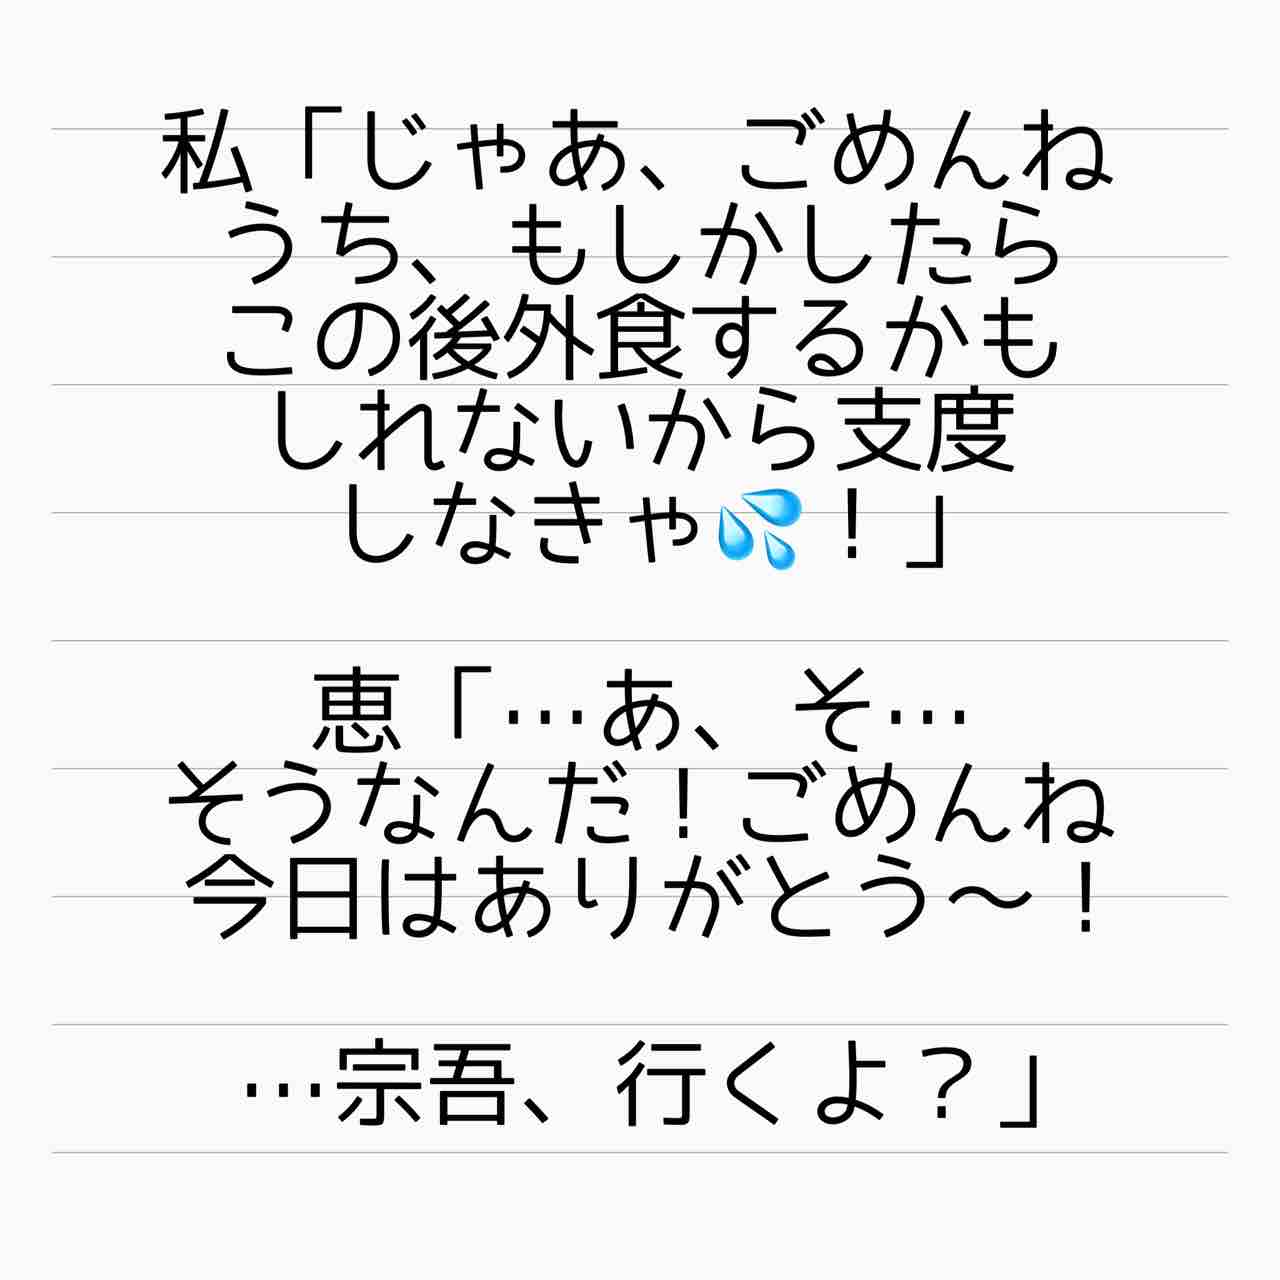 私「じゃあ、ごめんね
うち、もしかしたら
この後外食するかも
しれないから支度
しなきゃ💦！」
恵「…あ、そ…
そうなんだ！ごめんね
今日はありがとう〜！
…宗吾、行くよ？」